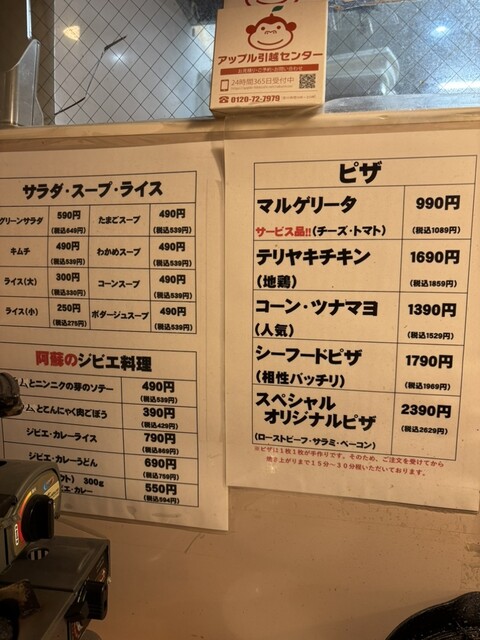 アップル引越センター
お見積り・ご予約・お問い合わせ
24時間365日受付中
0120-72-7979
サラダ・スープ・ライス
グリーンサラダ 590円 (税込649円) たまごスープ 490円 (税込539円)
キムチ 490円 (税込539円) わかめスープ 490円 (税込539円)
ライス(大) 300円 (税込330円) コーンスープ 490円 (税込539円)
ライス(小) 250円 (税込275円) ポタージュスープ 490円 (税込539円)
阿蘇のジビエ料理
ムとニンニクの芽のソテー 490円 (税込539円)
ムとこんにゃく肉ごぼう 390円 (税込429円)
ジビエ・カレーライス 790円 (税込869円)
ジビエ・カレーうどん 690円 (税込759円)
ウト) 300g
ビエ・カレー 550円 (税込594円)
ピザ
マルゲリータ 990円
サービス品!!(チーズ・トマト) (税込1089円)
テリヤキチキン 1690円
(地鶏) (税込1859円)
コーン・ツナマヨ 1390円
(人気) (税込1529円)
シーフードピザ 1790円
(相性バッチリ) (税込1969円)
スペシャル 2390円
オリジナルピザ (税込2629円)
(ローストビーフ・サラミ・ベーコン)
※ピザは1枚1枚が手作りです。そのため、ご注文を受けてから
焼き上がりまで15分~30分程いただいております。